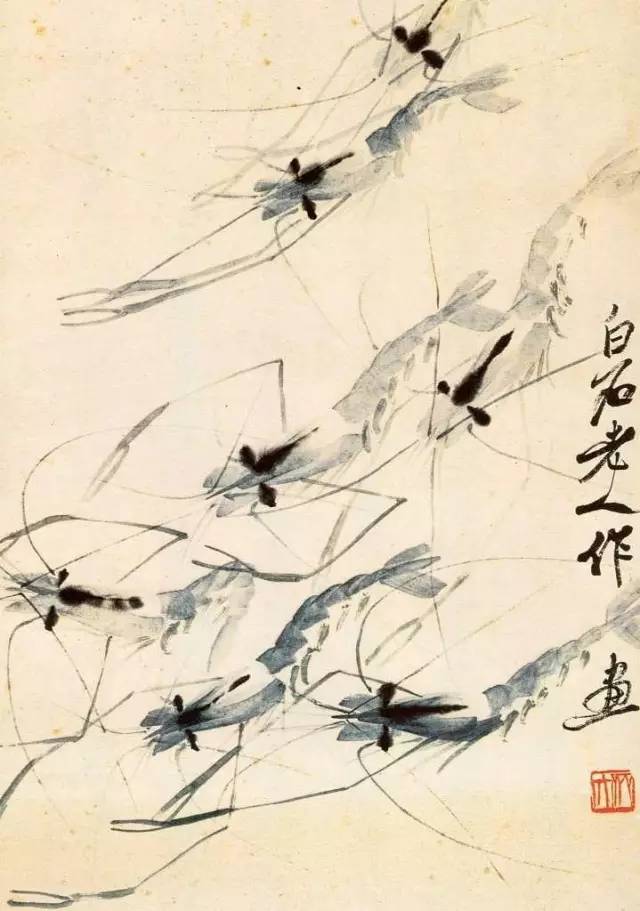 白石老人作畫